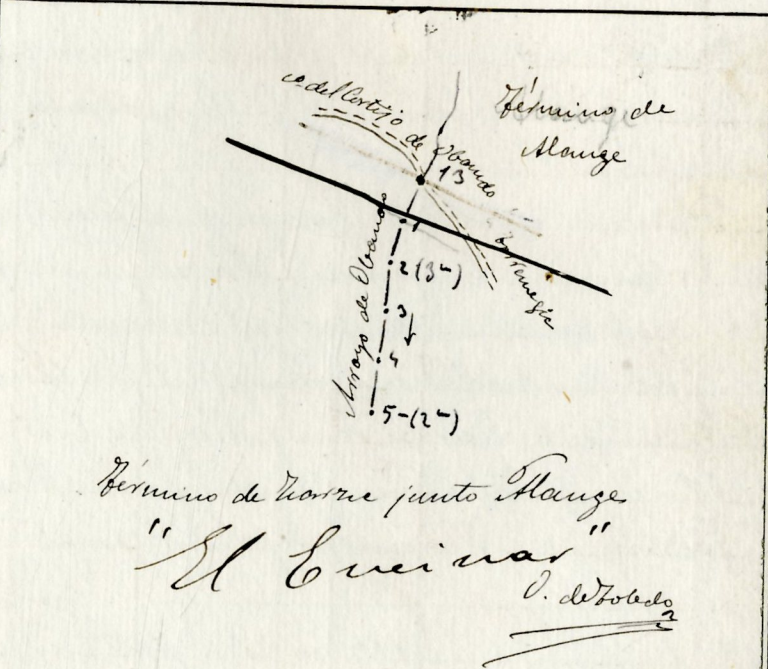 cº del Cortijo de Obando
Término de
Alange
13
Arroyo de Obando
1
2 (3ᵐ)
3
4
5-(2ᵐ)
Término de Zarza junto Alange
"El Encinar"
O. de Toledo